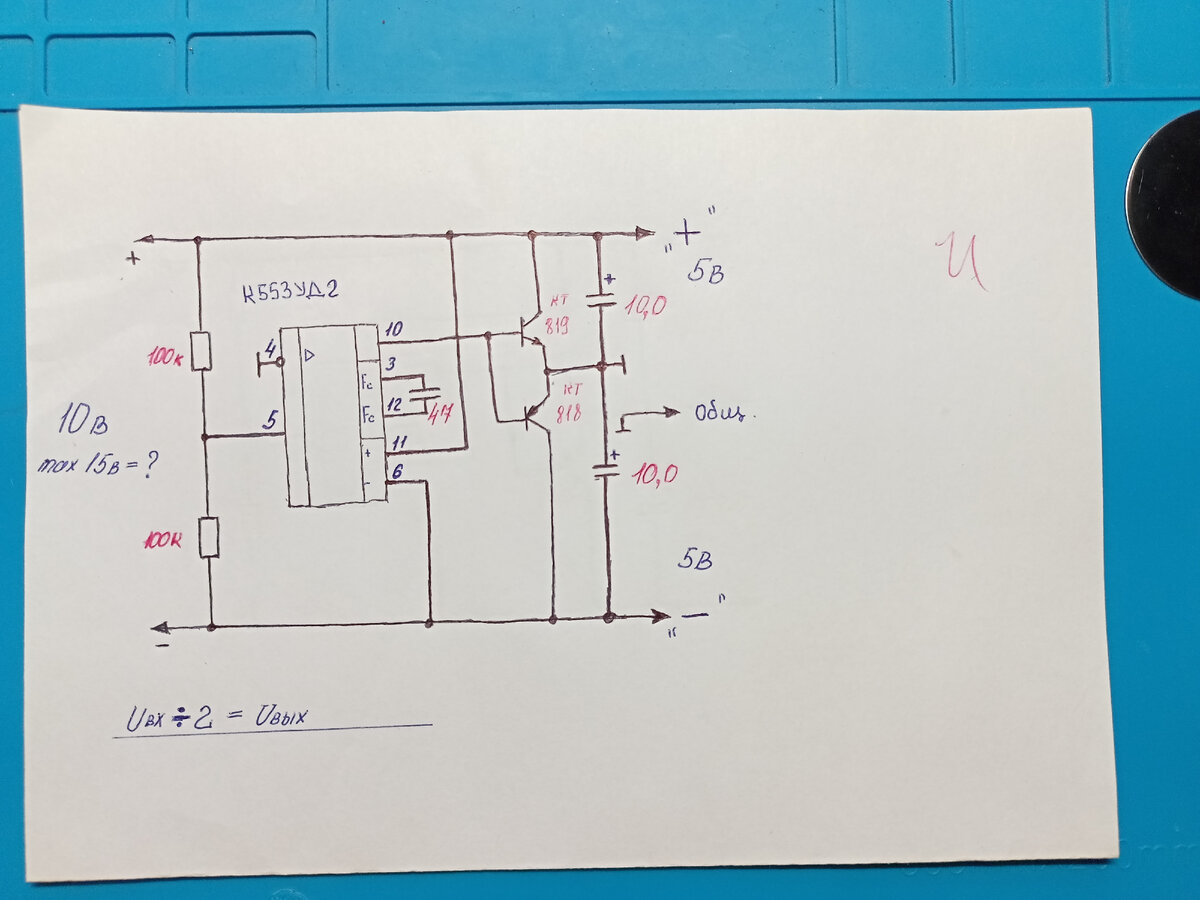 +
" + "
5В
К553УД2
10
КТ
819
10,0
+
4
3
100к
Fc
12
Fc
47
КТ
818
Общ.
10В
5
11
+
max 15в = ?
6
-
+
10,0
100к
5В
" — "
-
Uвх ÷ 2 = Uвых